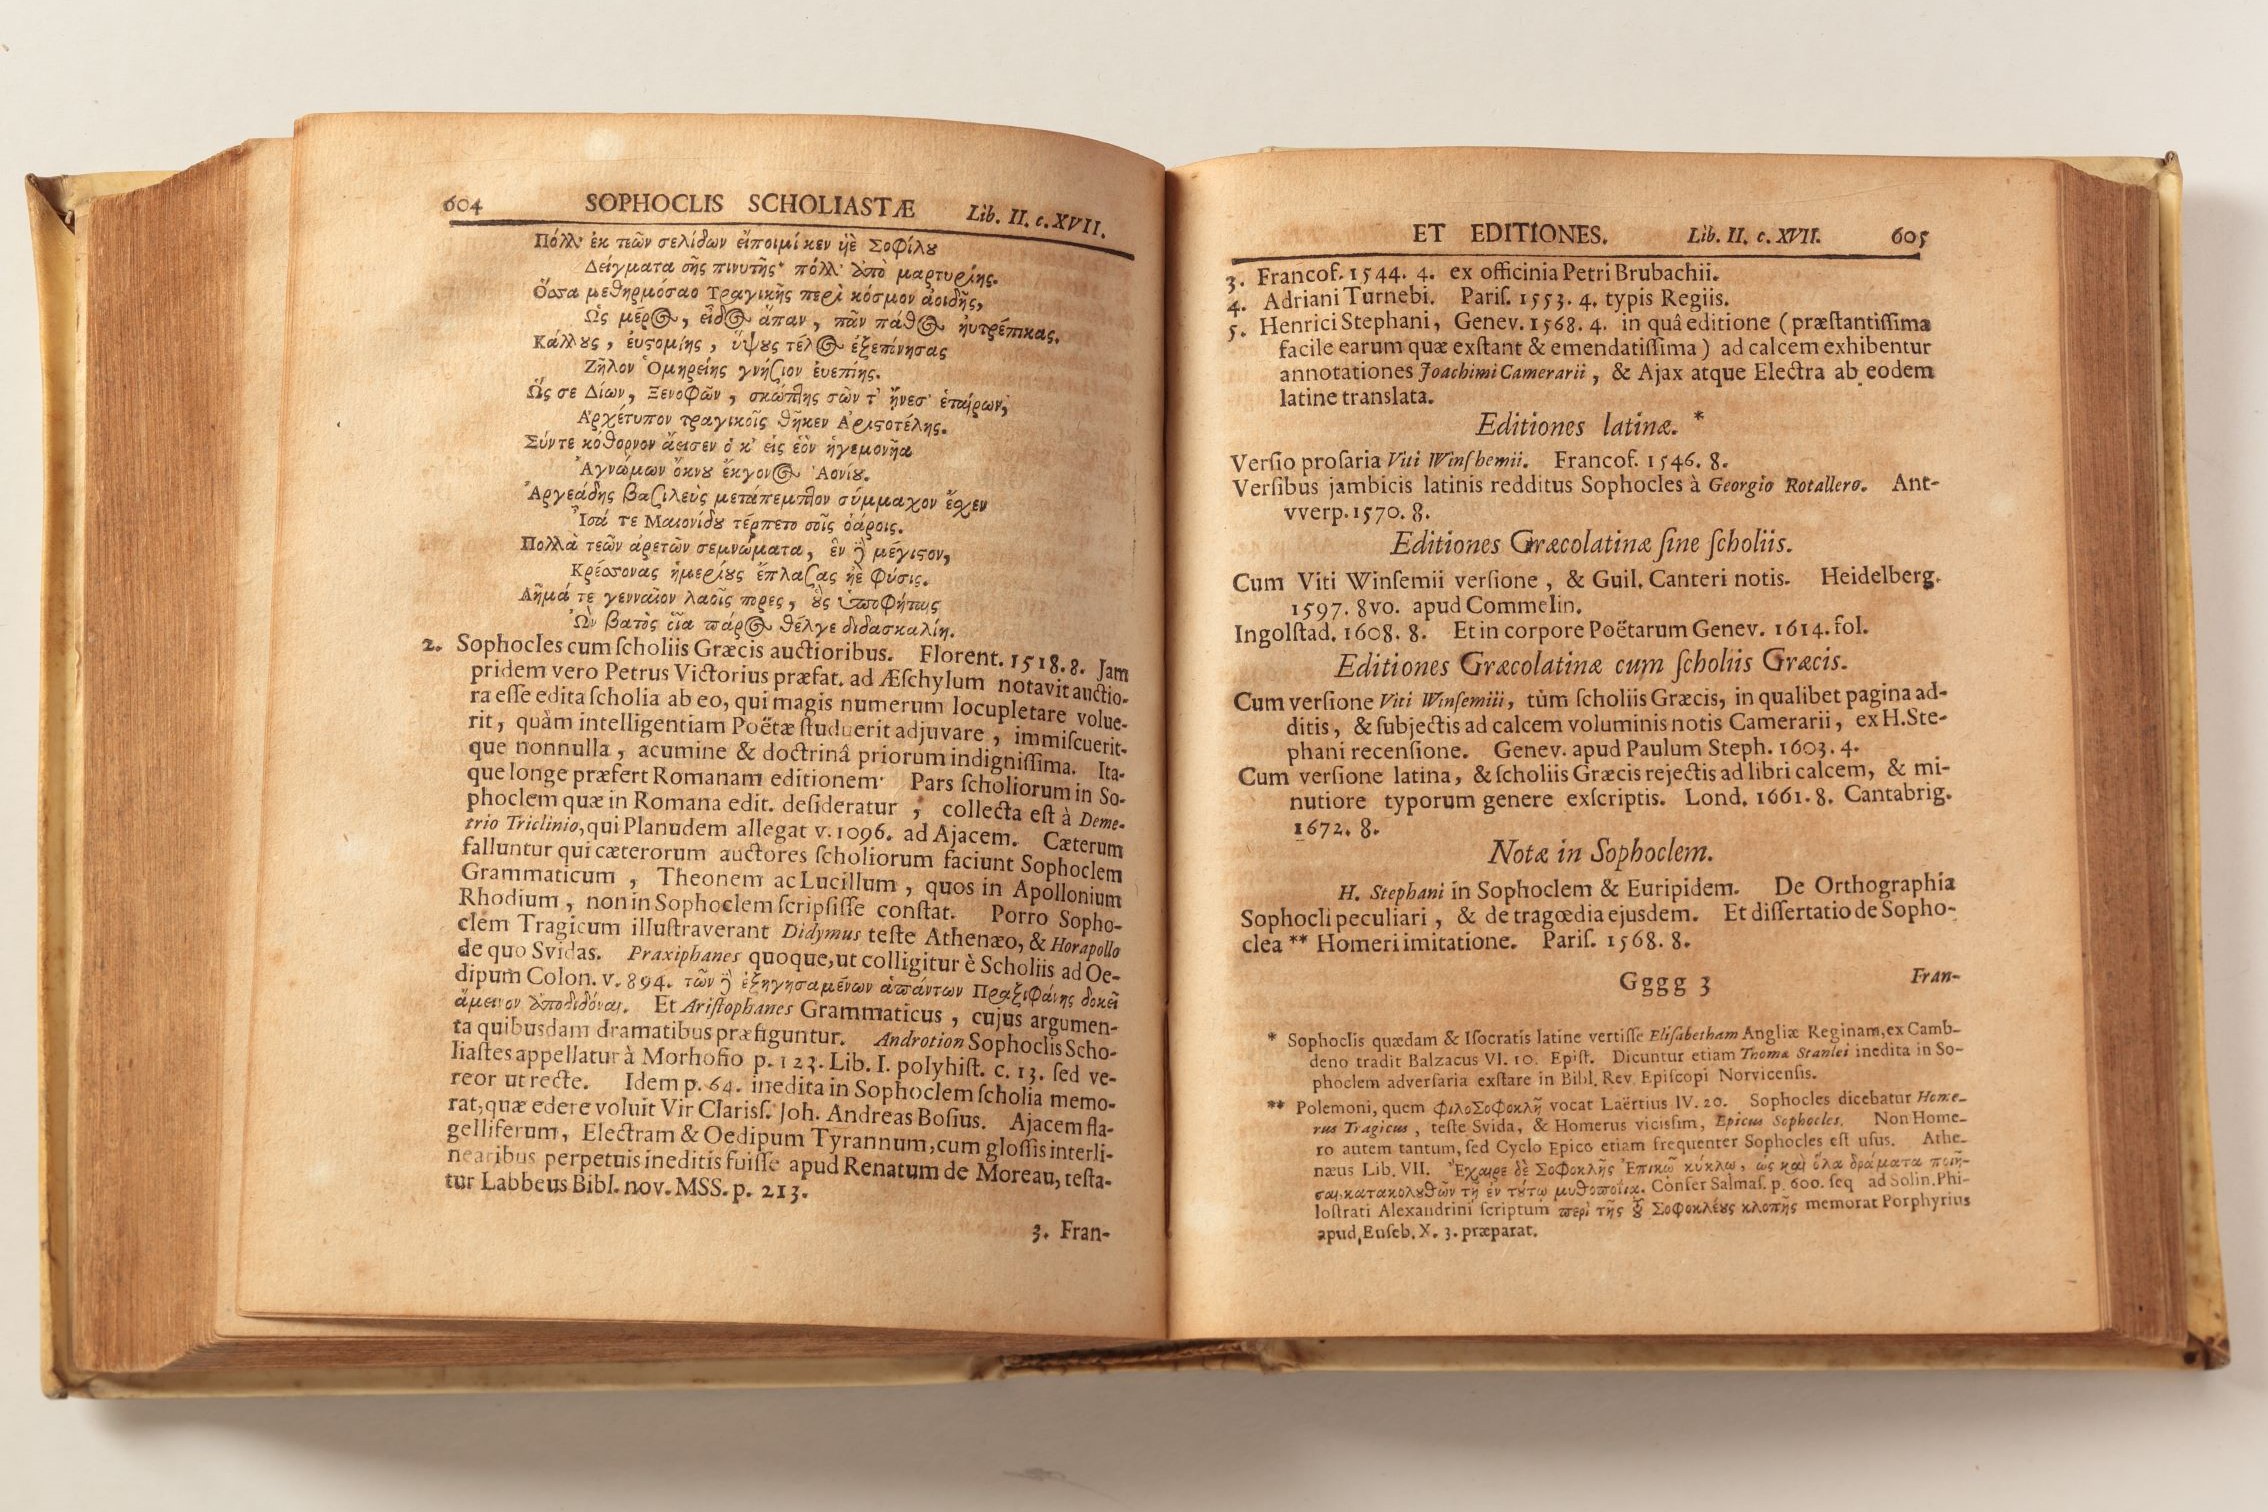 604 SOPHOCLIS SCHOLIASTÆ Lib. II. c. XVII.
Πόλλ' ἐκ τεῶν σελίδων εἴποιμί κεν ἠὲ Σοφίλου
Δείγματα σῆς πινυτῆς· πόλλ' ἀπὸ μαρτυρίης.
Ὅσσα μεθηρμόσαο Τραγικῆς περὶ κόσμον ἀοιδῆς,
Ὡς μέρος, εἶδος ἅπαν, πᾶν πάθος ηὐτρέπικας.
Κάλλους, εὐστομίης, ὕψους τέλος ἐξεπόνησας
Ζῆλον Ὁμηρείης γνήσιον εὐεπίης.
Ὥς σε Δίων, Ξενοφῶν, σκώπτης σῶν τ' ᾔνεσ' ἑταίρων,
Ἀρχέτυπον τραγικοῖς θῆκεν Ἀριστοτέλης.
Σύν τε κόθορνον ἄεισεν ὁ κ' εἰς ἑὸν ἡγεμονῆα
Ἀγνώμων ὄκνου ἔκγονος Ἀονίου.
Ἀργεάδης βασιλεὺς μετάπεμπτον σύμμαχον ἔσχεν
Ἶσά τε Μαιονίδου τέρπετο σοῖς ὀάροις.
Πολλὰ τεῶν ἀρετῶν σεμνώματα, ἓν δὲ μέγιστον,
Κρέσσονας ἡμερίους ἔπλασας ἠὲ φύσις.
Λῆμά τε γενναῖον λαοῖς πόρες, οὓς ὑποφήταις
Ὧν βατὸς οἷα πάρος θέλγε διδασκαλίη.
2. Sophocles cum ſcholiis Græcis auctioribus. Florent. 1518. 8. Jam
pridem vero Petrus Victorius præfat. ad Æſchylum notavit auctio-
ra eſſe edita ſcholia ab eo, qui magis numerum locupletare volue-
rit, quàm intelligentiam Poëtæ ſtuduerit adjuvare, immiſcuerit-
que nonnulla, acumine & doctrinâ priorum indigniſſima. Ita-
que longe præfert Romanam editionem· Pars ſcholiorum in So-
phoclem quæ in Romana edit. deſideratur, collecta eſt à Deme-
trio Triclinio, qui Planudem allegat v. 1096. ad Ajacem. Cæterum
falluntur qui cæterorum auctores ſcholiorum faciunt Sophoclem
Grammaticum, Theonem ac Lucillum, quos in Apollonium
Rhodium, non in Sophoclem ſcripſiſſe conſtat. Porro Sopho-
clem Tragicum illuſtraverant Didymus teſte Athenæo, & Horapollo
de quo Svidas. Praxiphanes quoque, ut colligitur è Scholiis ad Oe-
dipum Colon. v. 894. τῶν δὲ ἐξηγησαμένων ἁπάντων Πραξιφάνης δοκεῖ
ἄμεινον ἀποδιδόναι. Et Ariſtophanes Grammaticus, cujus argumen-
ta quibusdam dramatibus præfiguntur. Androtion Sophoclis Scho-
liaſtes appellatur à Morhofio p. 123. Lib. I. polyhiſt. c. 13. ſed ve-
reor ut recte. Idem p. 64. inedita in Sophoclem ſcholia memo-
rat, quæ edere voluit Vir Clariſſ. Joh. Andreas Boſius. Ajacem fla-
gelliferum, Electram & Oedipum Tyrannum, cum gloſſis interli-
nearibus perpetuis ineditis fuiſſe apud Renatum de Moreau, teſta-
tur Labbeus Bibl. nov. MSS. p. 213.
3. Fran-
ET EDITIONES. Lib. II. c. XVII. 605
3. Francof. 1544. 4. ex officinia Petri Brubachii.
4. Adriani Turnebi. Pariſ. 1553. 4. typis Regiis.
5. Henrici Stephani, Genev. 1568. 4. in quâ editione (præſtantiſſima
facile earum quæ exſtant & emendatiſſima) ad calcem exhibentur
annotationes Joachimi Camerarii, & Ajax atque Electra ab eodem
latine translata.
Editiones latinæ. *
Verſio proſaria Viti Winſhemii. Francof. 1546. 8.
Verſibus jambicis latinis redditus Sophocles à Georgio Rotallero. Ant-
vverp. 1570. 8.
Editiones Græcolatinæ ſine ſcholiis.
Cum Viti Winſemii verſione, & Guil. Canteri notis. Heidelberg.
1597. 8vo. apud Commelin.
Ingolſtad. 1608. 8. Et in corpore Poëtarum Genev. 1614. fol.
Editiones Græcolatinæ cum ſcholiis Græcis.
Cum verſione Viti Winſemiii, tùm ſcholiis Græcis, in qualibet pagina ad-
ditis, & ſubjectis ad calcem voluminis notis Camerarii, ex H. Ste-
phani recenſione. Genev. apud Paulum Steph. 1603. 4.
Cum verſione latina, & ſcholiis Græcis rejectis ad libri calcem, & mi-
nutiore typorum genere exſcriptis. Lond. 1661. 8. Cantabrig.
1672. 8.
Notæ in Sophoclem.
H. Stephani in Sophoclem & Euripidem. De Orthographia
Sophocli peculiari, & de tragœdia ejusdem. Et diſſertatio de Sopho-
clea ** Homeri imitatione. Pariſ. 1568. 8.
Gggg 3 Fran-
* Sophoclis quædam & Iſocratis latine vertiſſe Eliſabetham Angliæ Reginam, ex Camb-
deno tradit Balzacus VI. 10. Epiſt. Dicuntur etiam Thomæ Stanlei inedita in So-
phoclem adverſaria exſtare in Bibl. Rev. Epiſcopi Norvicenſis.
** Polemoni, quem φιλοΣοφοκλῆ vocat Laërtius IV. 20. Sophocles dicebatur Home-
rus Tragicus, teſte Svida, & Homerus viciſſim, Epicus Sophocles. Non Home-
ro autem tantum, ſed Cyclo Epico etiam frequenter Sophocles eſt uſus. Athe-
næus Lib. VII. Ἔχαιρε δὲ Σοφοκλῆς Ἐπικῷ κύκλῳ, ὡς καὶ ὅλα δράματα ποιῆ-
σαι κατακολουθῶν τῇ ἐν τούτῳ μυθοποιΐᾳ. Confer Salmaſ. p. 600. ſeq ad Solin. Phi-
loſtrati Alexandrini ſcriptum περὶ τῆς τοῦ Σοφοκλέους κλοπῆς memorat Porphyrius
apud Euſeb. X. 3. præparat.